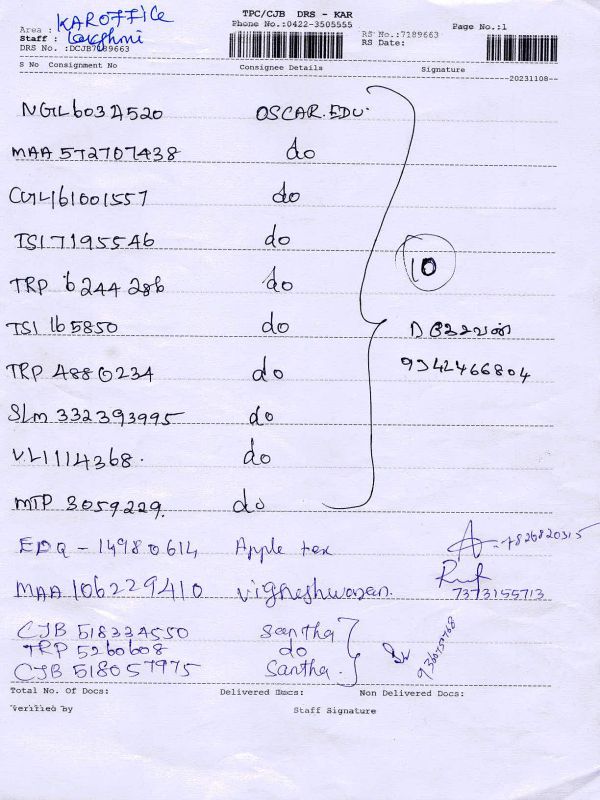 TPC/CJB DRS - KAR
Phone No.:0422-3505555
Area : KAR OFFICE
Staff : Lakshmi
DRS No. :DCJB7189663
RS No.:7189663
RS Date:
Page No.:1
S No Consignment No Consignee Details Signature
20231108
OSCAR.EDU.
MAA 572707438 do
CGL161001557 do
TSI 7195546 do
TRP 6244286 do
TSI 165850 do
TRP 4880234 do
SLM 332393995 do
VL1114368. do
MTP 3059229. do
10
9342466804
EDQ - 14980614 Apple tex
MAA 106229410 Vigneshwaran.
7373155713
CJB 518334550 Santha
TRP 5260608 do
CJB 518057975 Santha.
Total No. Of Docs: Delivered Docs: Non Delivered Docs:
Verified by Staff Signature